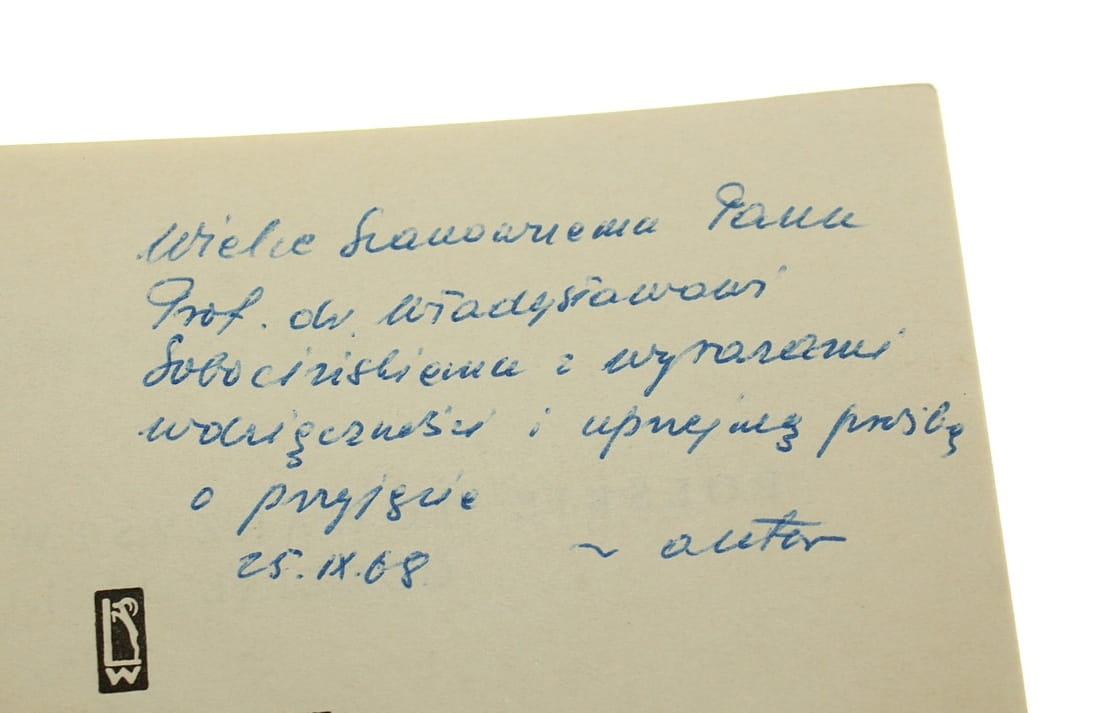 Wielce Szanownemu Panu
Prof. dr. Władysławowi
Sobocińskiemu z wyrazami
wdzięczności i uprzejmą prośbą
o przyjęcie
25.IX.68 ~ autor
LW